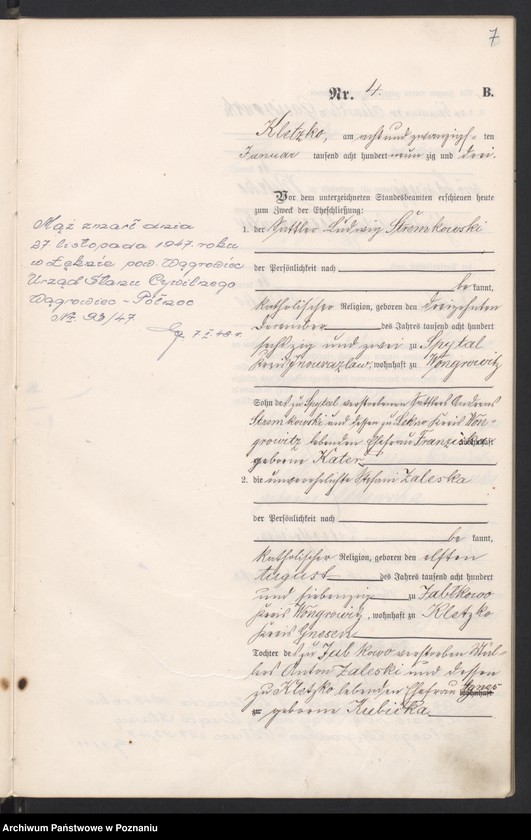 7
Nr. 4. B.
Kletzko, am acht und zwanzig= ten
Januar tausend acht hundert neun zig und drei.
Vor dem unterzeichneten Standesbeamten erschienen heute
zum Zweck der Eheschließung:
1. der Sattler Ludwig Stremkowski
der Persönlichkeit nach
be kannt,
katholischer Religion, geboren den dreizehnten
Dezember des Jahres tausend acht hundert
sechszig und zwei zu Spytal
Kreis Inowrazlaw, wohnhaft zu Wongrowitz
Sohn des zu Spytal verstorbenen Sattlers Andreas
Stremkowski und dessen zu Lekno Kreis Won-
growitz lebenden Ehefrau Franziska
geborene Kater
2. die unverehelichte Stefani Zaleska
der Persönlichkeit nach
be kannt,
katholischer Religion, geboren den elften
August des Jahres tausend acht hundert
und siebenzig zu Jablkowo
Kreis Wongrowitz, wohnhaft zu Kletzko
Kreis Gnesen
Tochter des zu Jablkowo verstorbenen Mül-
lers Anton Zaleski und dessen
zu Kletzko lebenden Ehefrau Agnes
geborene Kubicka
Mąż zmarł dnia
27 listopada 1947. roku
w Łeknie pow. Wągrowiec
Urząd Stanu Cywilnego
Wągrowiec - Północ
Nr. 93/47
7 I 48 r.
Archiwum Państwowe w Poznaniu